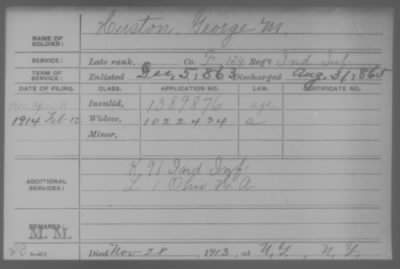 NAME OF SOLDIER: Huston, George M.
SERVICE: Late rank, Co. F, 124 Reg't Ind Inf.
TERM OF SERVICE: Enlisted Dec, 5, 1863 Discharged Aug. 31, 1865
DATE OF FILING. CLASS. APPLICATION NO. LAW. CERTIFICATE NO.
Invalid, 1389876 age
1914 Feb-12 Widow, 1022434 a
Minor,
ADDITIONAL SERVICES: K, 91 Ind Inf.
L 1 Ohio H A
REMARKS:
M. M.
Died Nov-28, 1913, at N.Y., N.Y.